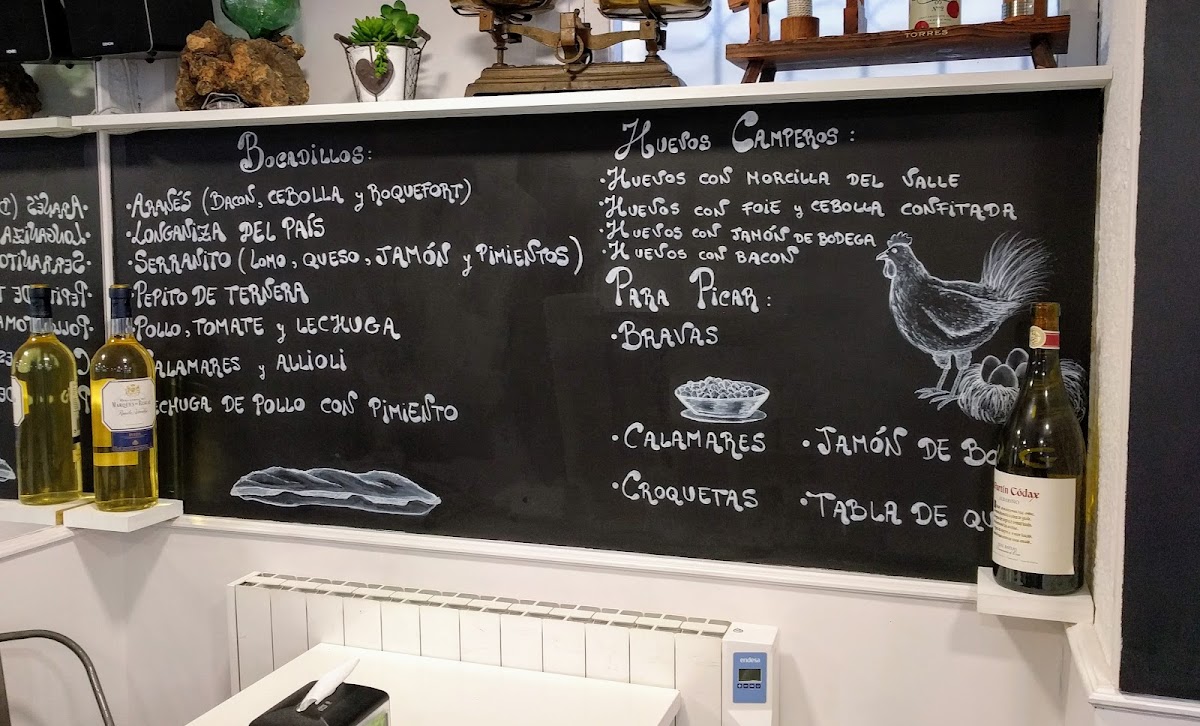 TORRES
Bocadillos:
·Aranés (Bacon, cebolla y roquefort)
·Longaniza del país
·Serranito (lomo, queso, jamón y pimientos)
·Pepito de ternera
·Pollo, tomate y lechuga
alamares y allioli
echuga de pollo con pimiento
Huevos Camperos:
·Huevos con morcilla del valle
·Huevos con foie y cebolla confitada
·Huevos con jamón de bodega
·Huevos con bacon
Para Picar:
·Bravas
·Calamares
·Jamón de Bo
·Croquetas
·Tabla de qu
artín Códax
endesa